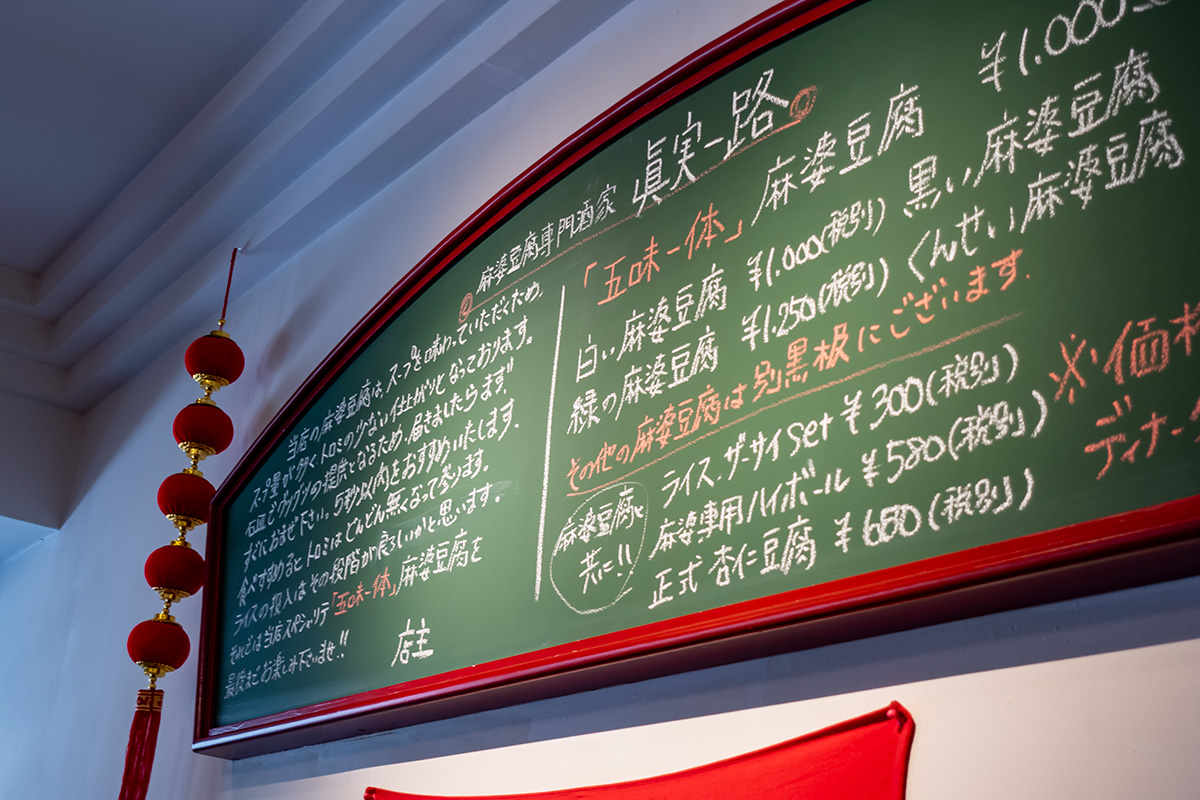 麻婆豆腐専門酒家 眞実一路
当店の麻婆豆腐は、スーッと味わっていただくため、
スープ量が多く、トロミの少ない仕上がりとなっております。
石皿でグツグツの提供となるため、届きましたらまず
すぐにおまぜ下さい。5秒以内をおすすめいたします。
食べすすめると、トロミはどんどん無くなって参ります。
ライスの投入はその段階が良ろしいかと思います。
それでは当店スペシャリテ「五味一体」麻婆豆腐を
最後までお楽しみ下さいませ!!
店主
「五味一体」麻婆豆腐 ¥1.000
白い麻婆豆腐 ¥1.000(税別) 黒い麻婆豆腐
緑の麻婆豆腐 ¥1.250(税別) くんせい麻婆豆腐
その他の麻婆豆腐は別黒板にございます。
麻婆豆腐と
共に!!
ライス.ザーサイset ¥300(税別)
麻婆専用ハイボール ¥580(税別)
正式 杏仁豆腐 ¥680(税別)
※価格
ディナー